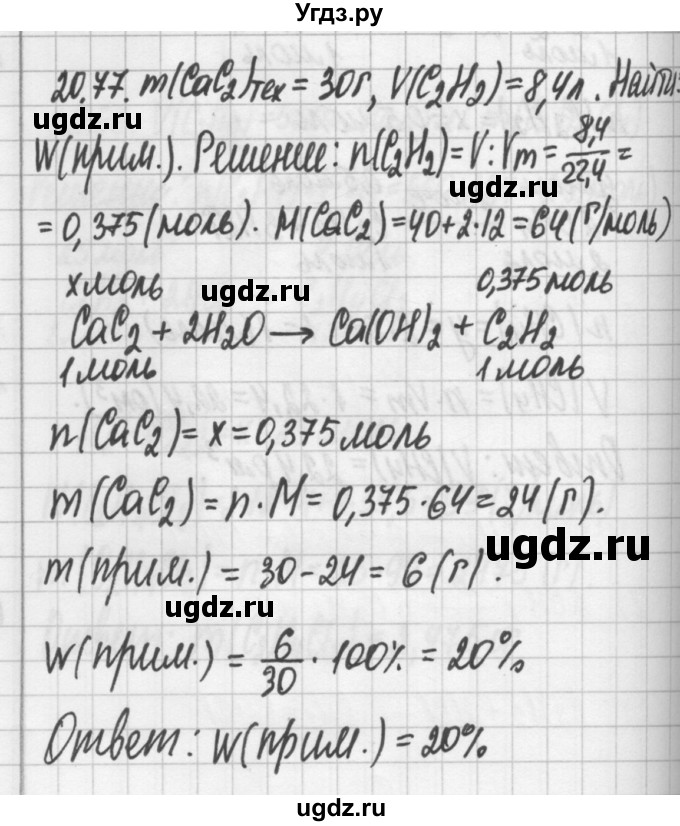 Угдз.ру
20.77. m(CaC₂)тех = 30г, V(C₂H₂) = 8,4л. Найти:
ugdz.ru
W(прим.). Решение: n(C₂H₂) = V : Vm = 8,4/22,4 =
ugdz.ru
= 0,375(моль). M(CaC₂) = 40+2·12 = 64(г/моль)
x моль 0,375 моль
ugdz.ru
CaC₂ + 2H₂O → Ca(OH)₂ + C₂H₂
1 моль 1 моль
n(CaC₂) = x = 0,375 моль
m(CaC₂) = n·M = 0,375·64 = 24(г).
ugdz.ru
m(прим.) = 30-24 = 6(г).
ugdz.ru
W(прим.) = 6/30 · 100% = 20%
Ответ: W(прим.) = 20%
ugdz.ru
ugdz.ru